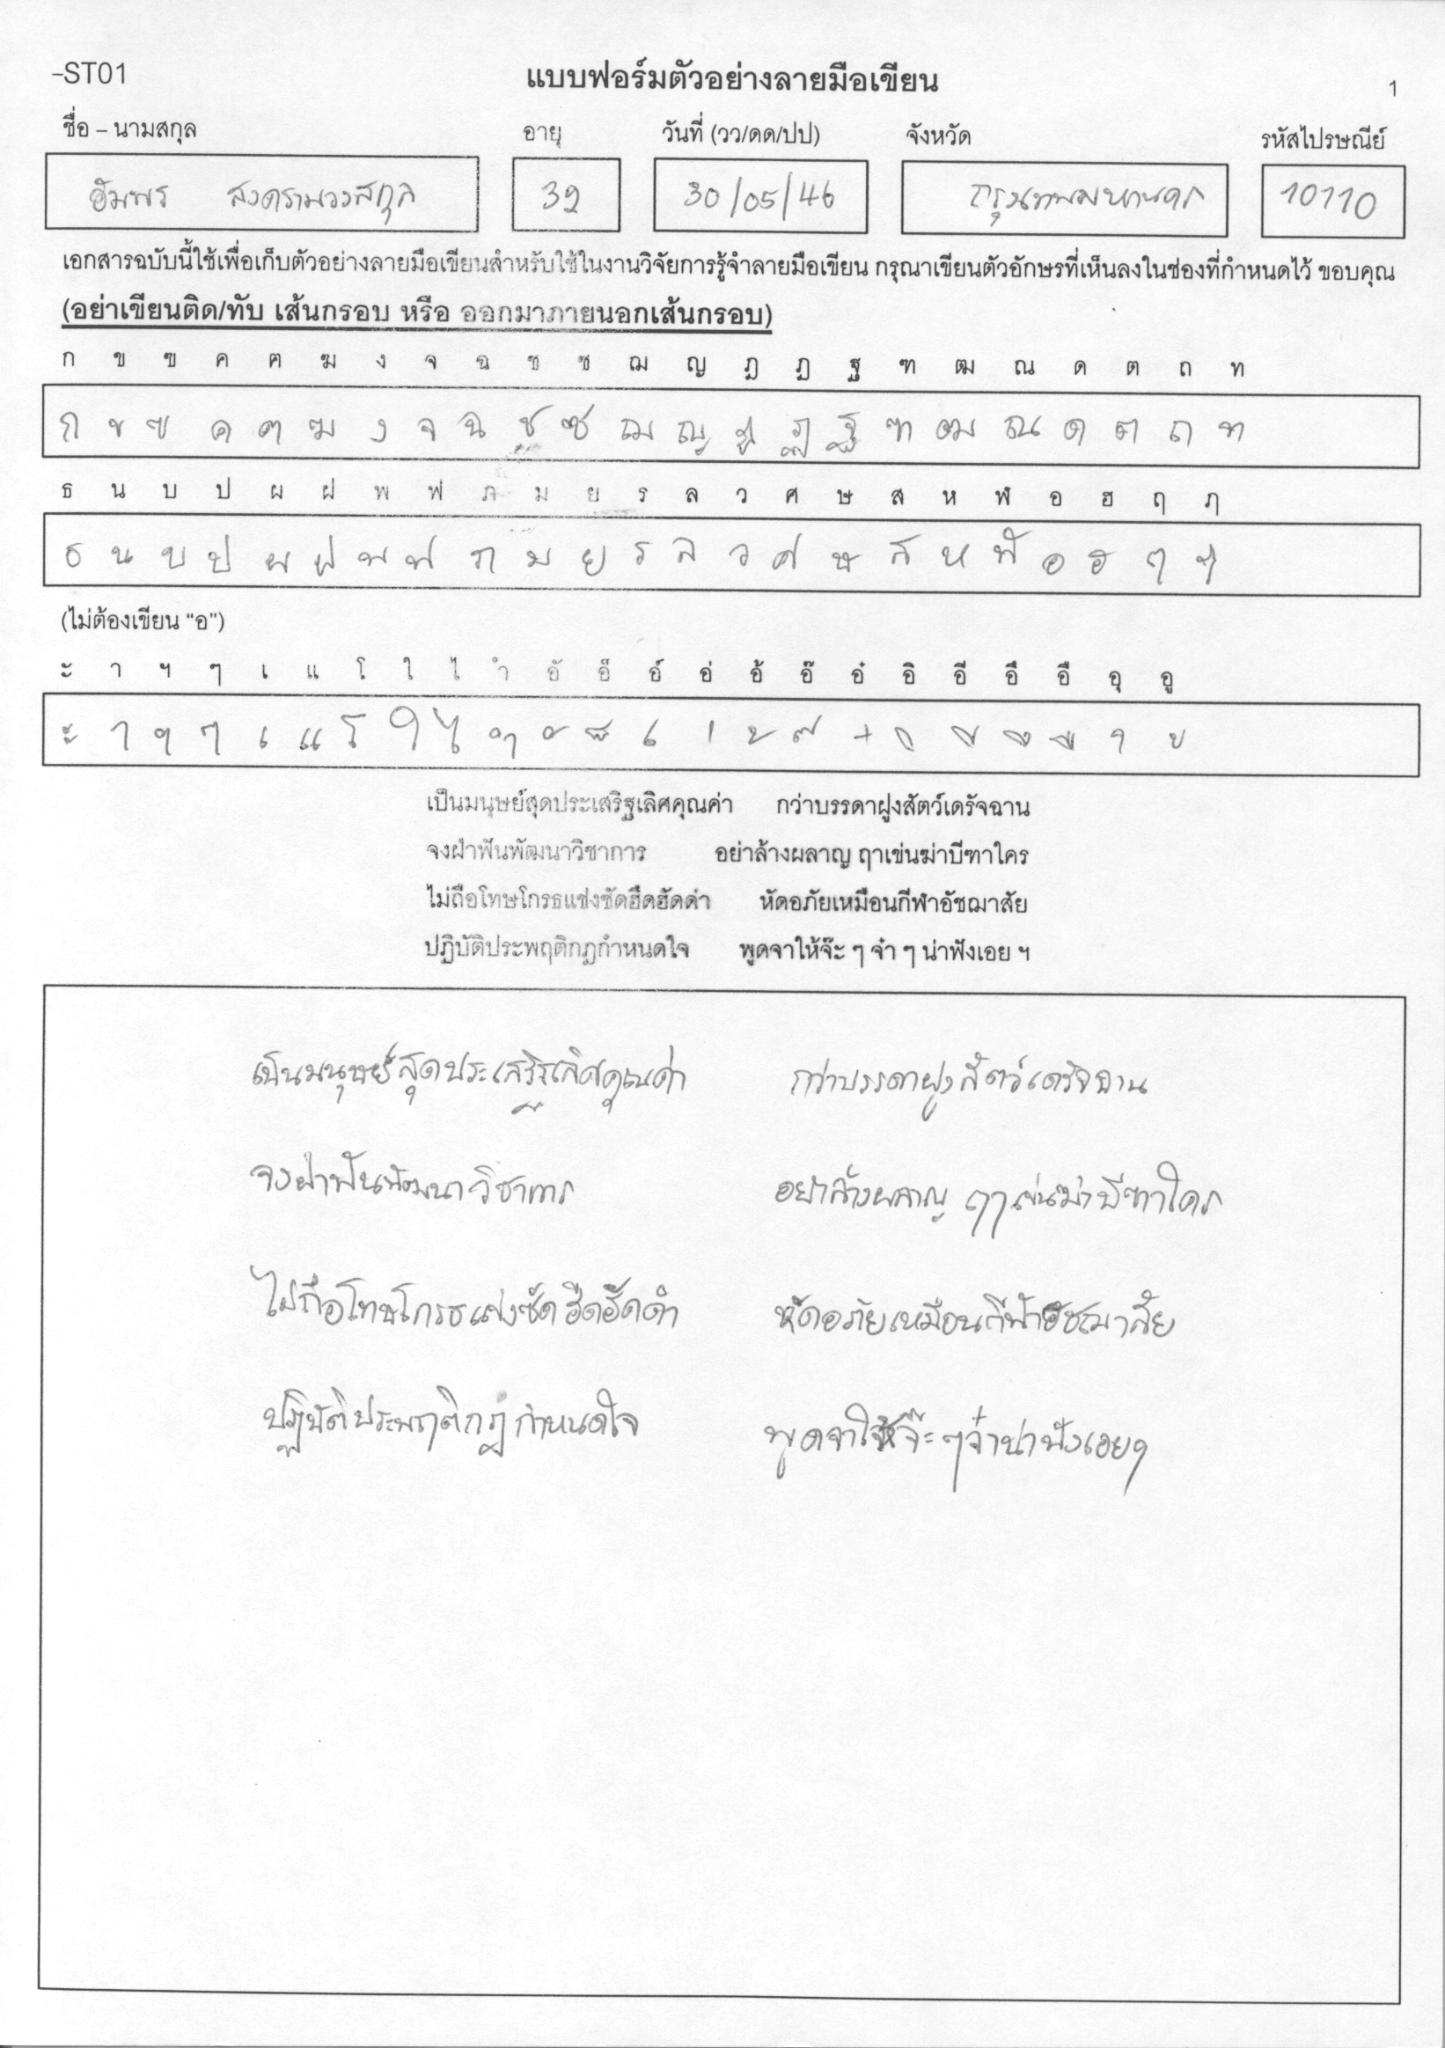 -ST01 แบบฟอร์มตัวอย่างลายมือเขียน 1
ชื่อ – นามสกุล อายุ วันที่ (วว/ดด/ปป) จังหวัด รหัสไปรษณีย์
อัมพร สงครามวงสกุล 32 30/05/46 กรุงเทพมหานคร 10110
เอกสารฉบับนี้ใช้เพื่อเก็บตัวอย่างลายมือเขียนสำหรับใช้ในงานวิจัยการรู้จำลายมือเขียน กรุณาเขียนตัวอักษรที่เห็นลงในช่องที่กำหนดไว้ ขอบคุณ
(อย่าเขียนติด/ทับ เส้นกรอบ หรือ ออกมาภายนอกเส้นกรอบ)
ก ข ฃ ค ฅ ฆ ง จ ฉ ช ซ ฌ ญ ฎ ฏ ฐ ฑ ฒ ณ ด ต ถ ท
ก ข ฃ ค ฅ ฆ ง จ ฉ ช ซ ฌ ญ ฎ ฏ ฐ ฑ ฒ ณ ด ต ถ ท
ธ น บ ป ผ ฝ พ ฟ ภ ม ย ร ล ว ศ ษ ส ห ฬ อ ฮ ฤ ฦ
ธ น บ ป ผ ฝ พ ฟ ภ ม ย ร ล ว ศ ษ ส ห ฬ อ ฮ ฤ ฦ
(ไม่ต้องเขียน “อ”)
ะ า ฯ ๆ เ แ โ ใ ไ ำ อั อ็ อ์ อ่ อ้ อ๊ อ๋ อิ อี อึ อื อุ อู
ะ า ฯ ๆ เ แ โ ใ ไ ำ ั ็ ์ ่ ้ ๊ ๋ ิ ี ึ ื ุ ู
เป็นมนุษย์สุดประเสริฐเลิศคุณค่า กว่าบรรดาฝูงสัตว์เดรัจฉาน
จงฝ่าฟันพัฒนาวิชาการ อย่าล้างผลาญ ฤาเข่นฆ่าบีฑาใคร
ไม่ถือโทษโกรธแช่งซัดฮึดฮัดด่า หัดอภัยเหมือนกีฬาอัชฌาสัย
ปฏิบัติประพฤติกฎกำหนดใจ พูดจาให้จ๊ะ ๆ จ๋า ๆ น่าฟังเอย ฯ
เป็นมนุษย์สุดประเสริฐเลิศคุณค่า กว่าบรรดาฝูงสัตว์เดรัจฉาน
จงฝ่าฟันพัฒนาวิชาการ อย่าล้างผลาญ ฤาเข่นฆ่าบีฑาใคร
ไม่ถือโทษโกรธแช่งซัดฮึดฮัดด่า หัดอภัยเหมือนกีฬาอัชฌาสัย
ปฏิบัติประพฤติกฎกำหนดใจ พูดจาให้จ๊ะ ๆ จ๋าน่าฟังเอยฯ